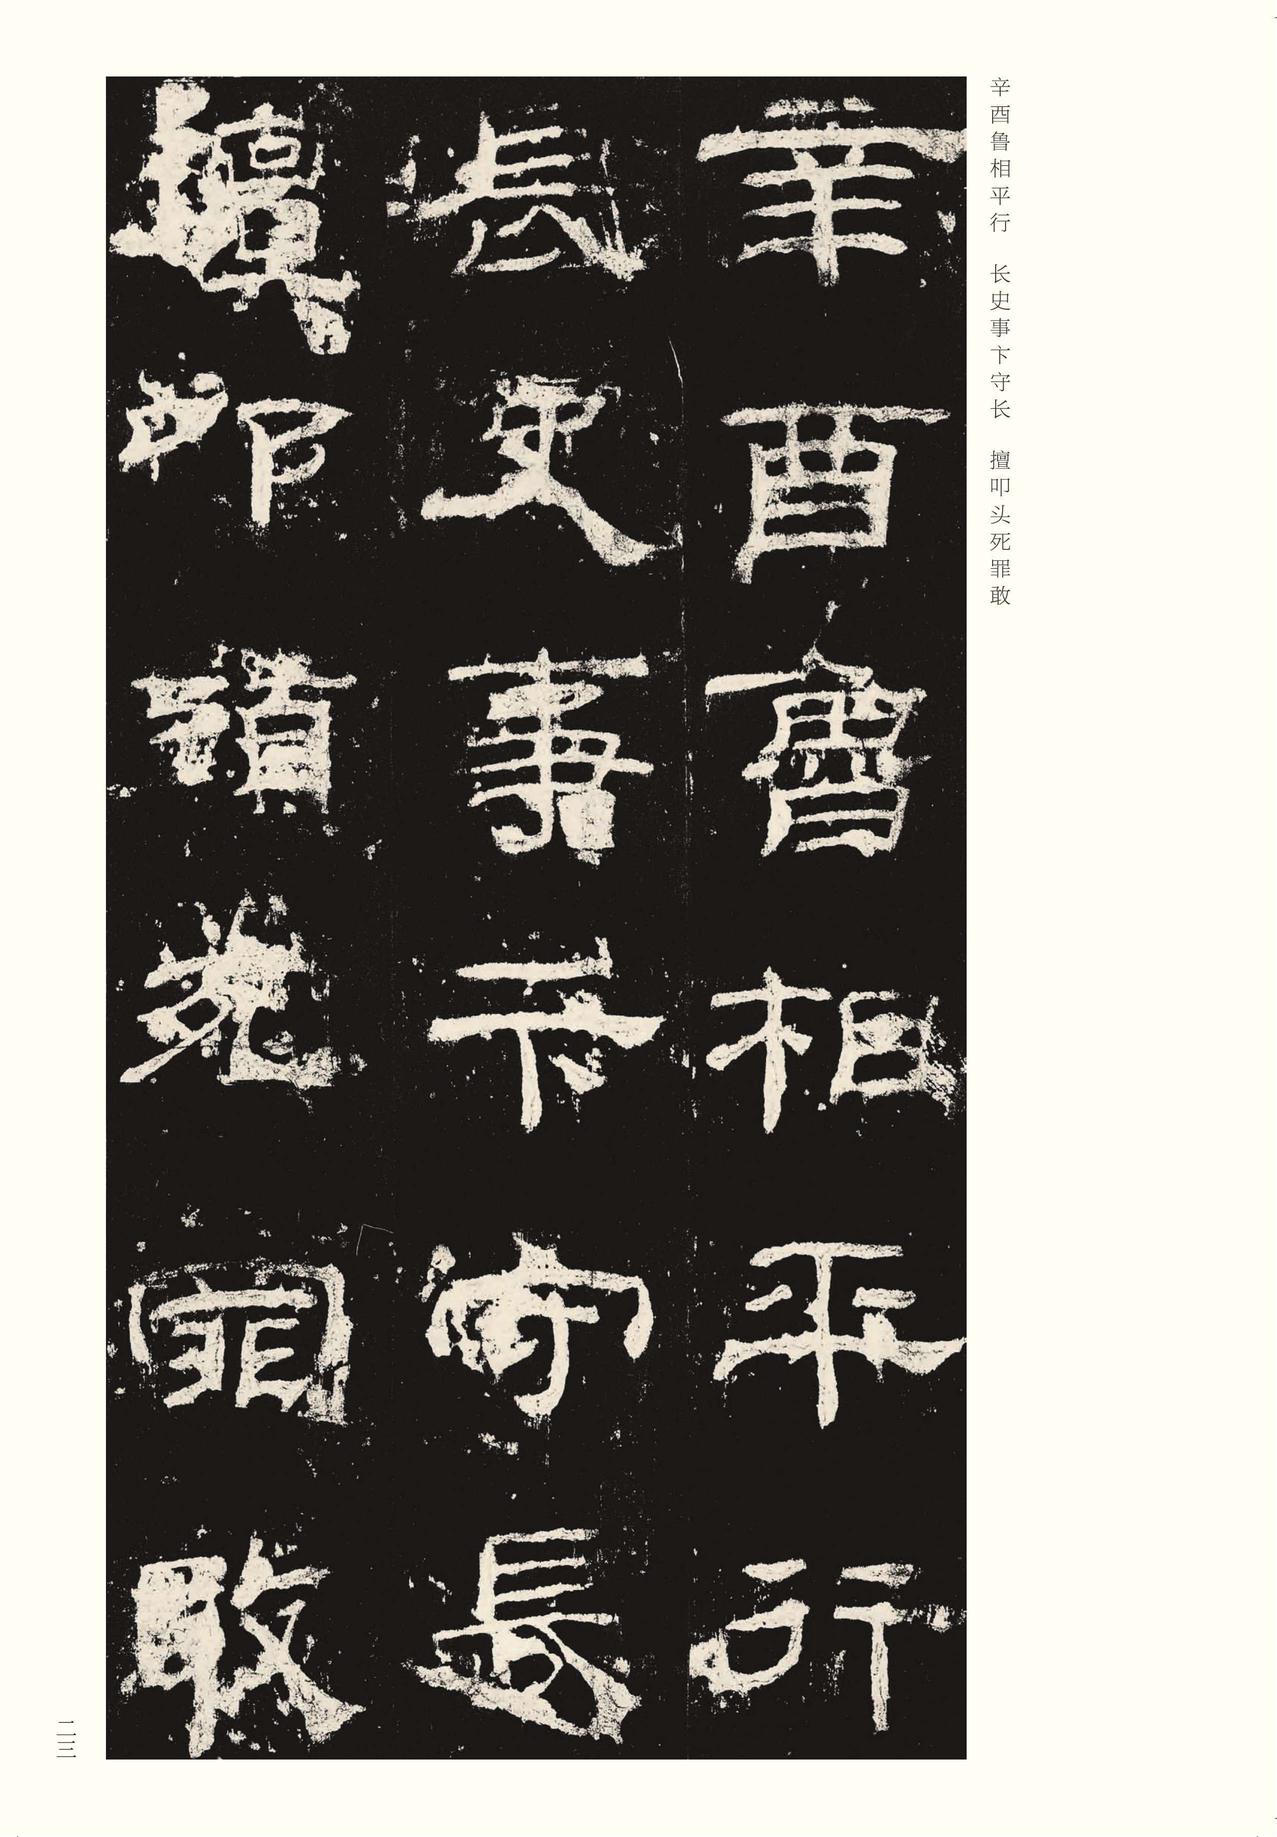 辛酉鲁相平行　长史事卞守长　擅叩头死罪敢
辛酉魯相平行
長史事卞守長
擅叩頭死罪敢
二三